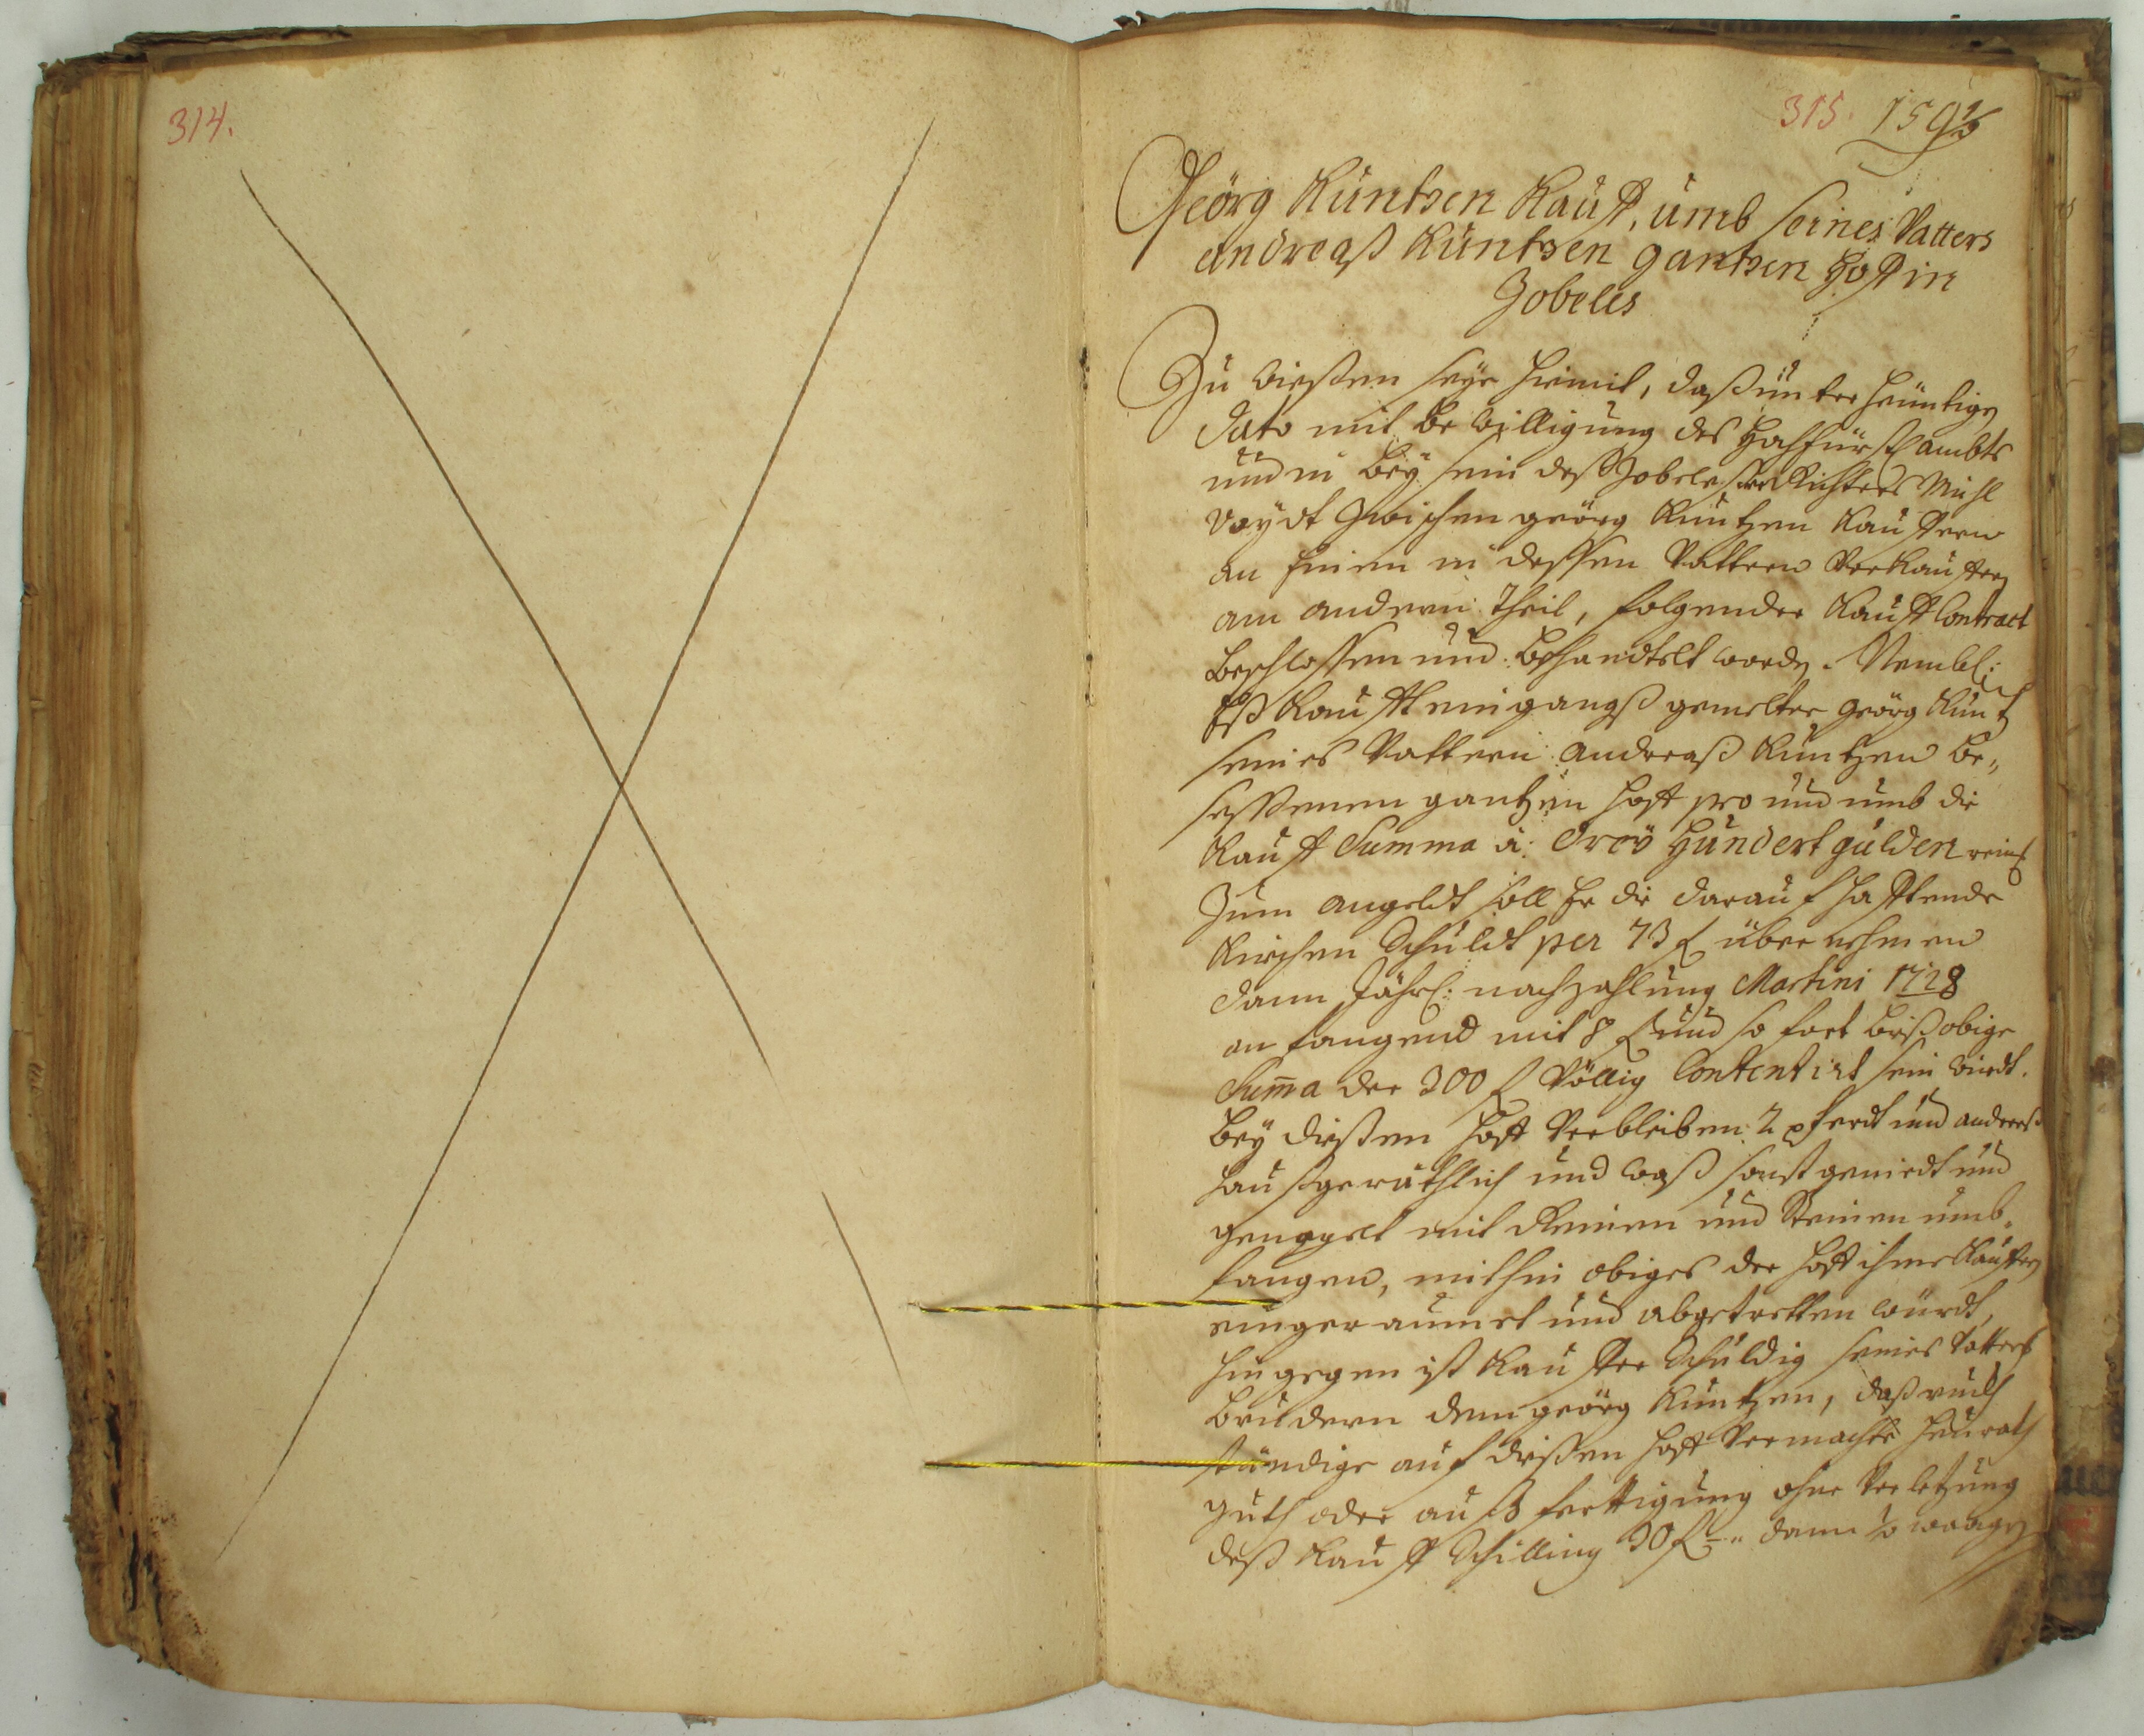 314.
315. 159½
Geörg Küntzen Kauff, umb seines Vatters
andreaß Küntzen gantzen Hoff in
Zobeles
Zu wießen seye hiemit, daß unter heüntigen
dato mit Bewilligung des Hochfürstl ambts
und in beÿ sein deß Zobeleser Richters Michl
Voÿdt Zwischen geörg Küntzen Kauffern
an einem in dessen Vattern Verkauffern
am andern Theil, folgender Kauff Contract
beschlossen und behandtelt worden. Nembl:
Eß Kaufft eingangß gemelter geörg Küntz
seines Vattern andreaß Küntzen be„
sessenen gantzen Hoff pro und umb die
Kauff Summa à: dreÿ Hundert gülden reinl
Zum angeldt soll Er die darauf hafftende
Kirchen Schuldt per 73 f übernehmen
dann Jährl: nachzahlung Martini 1728
anfangend mit 8 f und so fort biß obige
Suma der 300 f Völlig Contentirt sein wirdt.
Beÿ dießem Hoff Verbleiben 2 pferdt und anderes
haußgeräthlich und waß sonst geniedt und
genagelt mit Reinen und Steinen umb„
fangen, mithin obiges der Hoff ihme Kauffern
eingeraumet und abgetretten würdt,
hingegen ist Kauffer Schuldig seines Vatters
brudern dem geörg Küntzen, daß rück
ständige auf dißen Hoff Vermachte Heürath
guth oder außfertigung ohne Verletzung
deß Kauff Schilling 30 f dann ½ waagen